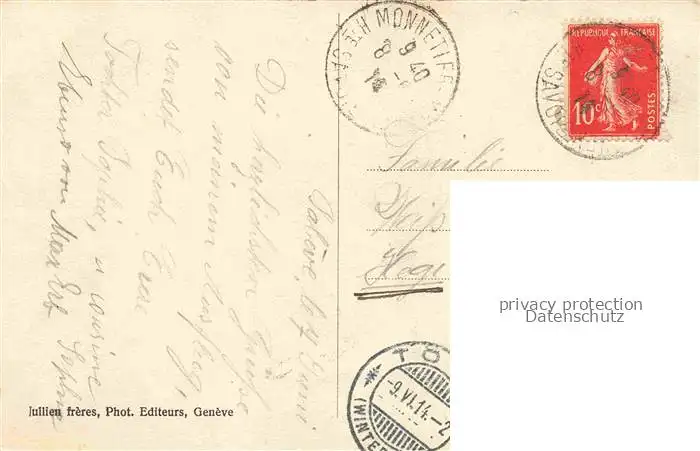 Salève, le 7 Juni
Die herzlichsten Grüsse
von meinem Ausflug,
sendet Euch Eure
Tochter Sophie, u cousine
Ebenso von Max Erb Sophie
Jullien frères, Phot. Editeurs, Genève
MONNETIER
HTE SAVOIE
9 40
8 -6
14
REPUBLIQUE FRANÇAISE
10c
POSTES
Familie
TÖ
-9.VI.14.-2
(WINTER
privacy protection
Datenschutz